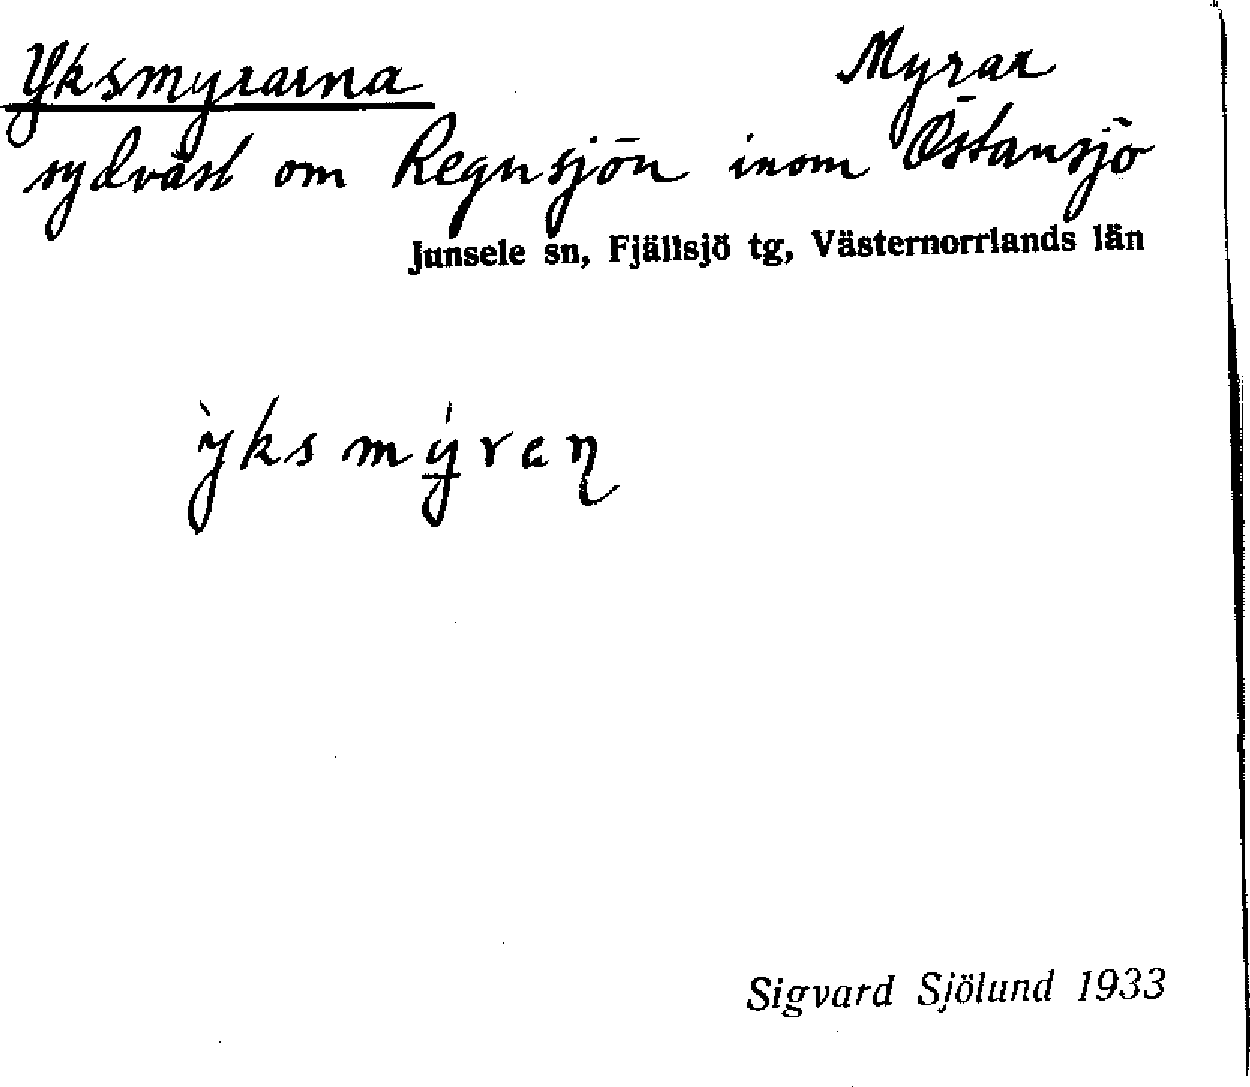 Yksmyrarna Myrar
sydväst om Regnsjön inom Östansjö
Junsele sn, Fjällsjö tg, Västernorrlands län
`yksmý̲ren̨
Sigvard Sjölund 1933